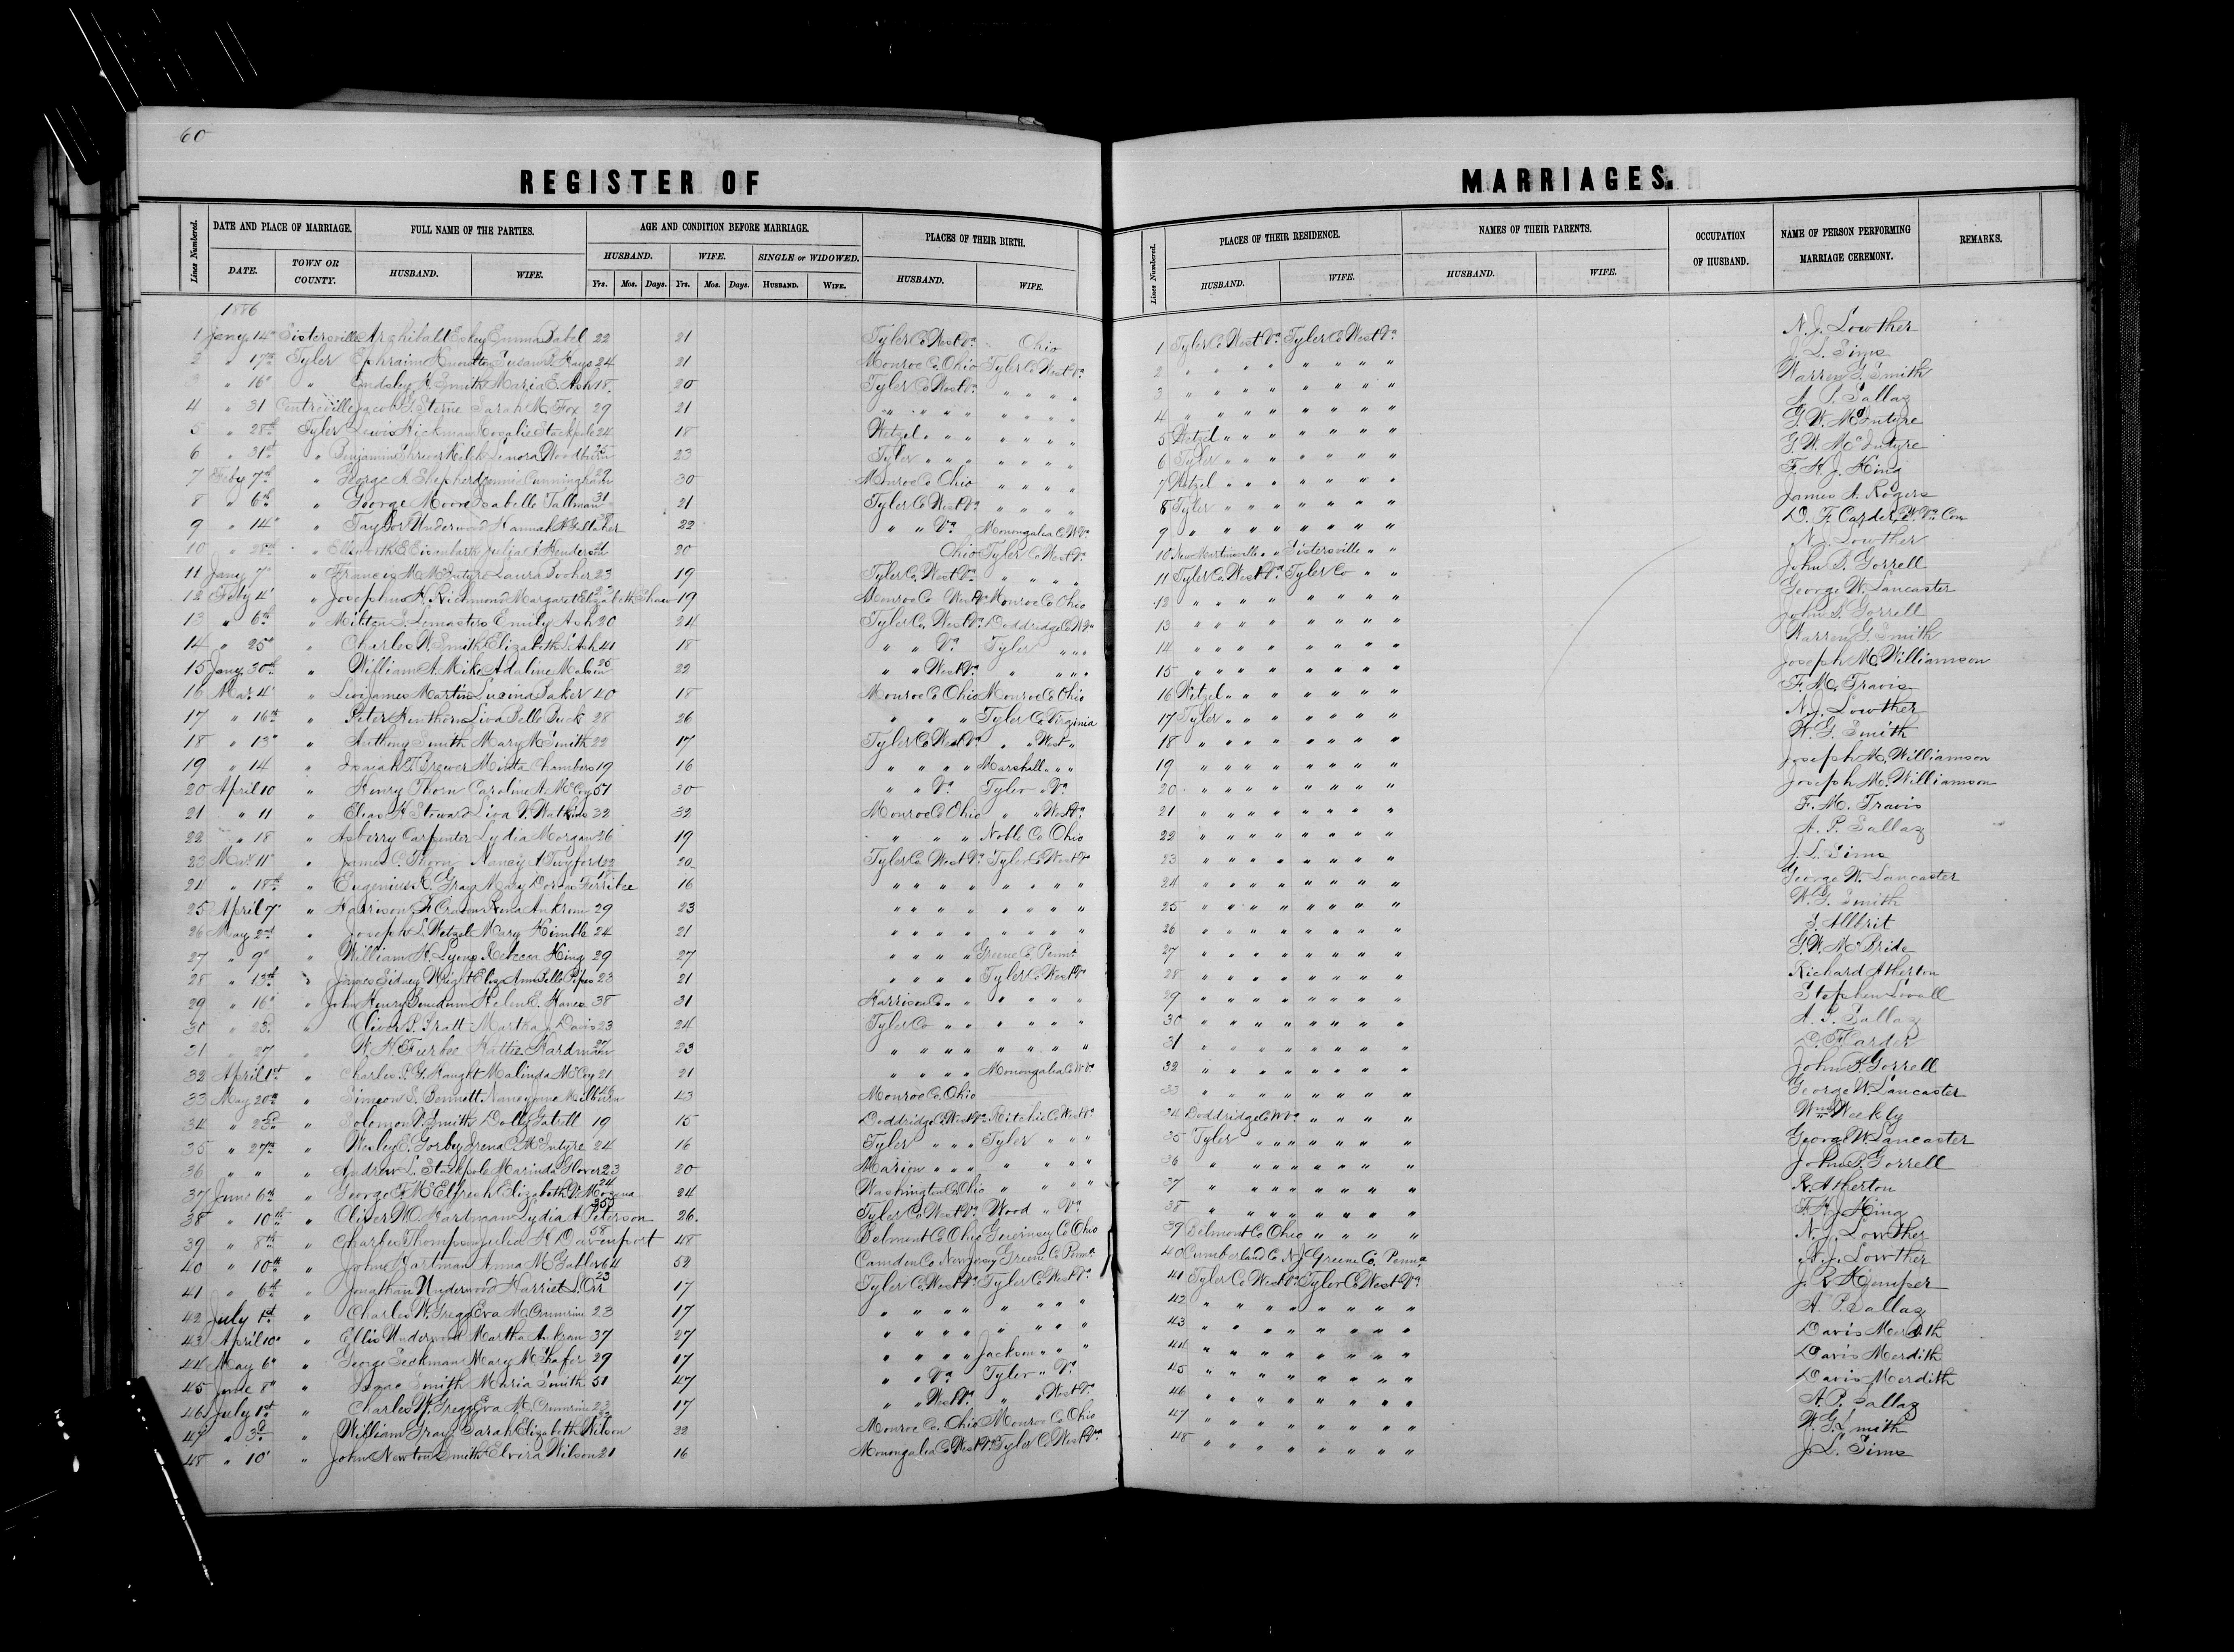 60
REGISTER OF MARRIAGES.
Lines Numbered. DATE AND PLACE OF MARRIAGE. FULL NAME OF THE PARTIES. AGE AND CONDITION BEFORE MARRIAGE. PLACES OF THEIR BIRTH. Lines Numbered. PLACES OF THEIR RESIDENCE. NAMES OF THEIR PARENTS. OCCUPATION OF HUSBAND. NAME OF PERSON PERFORMING MARRIAGE CEREMONY. REMARKS.
DATE. TOWN OR COUNTY. HUSBAND. WIFE. HUSBAND. WIFE. SINGLE or WIDOWED. HUSBAND. WIFE. HUSBAND. WIFE. HUSBAND. WIFE.
Yrs. Mos. Days. Yrs. Mos. Days. HUSBAND. WIFE.
1886
1 Jany 14" Sistersville Archibald Eskey Emma Dabel 22 21 Tyler Co West Va Ohio 1 Tyler Co West Va Tyler Co West Va N. J. Lowther
2 " 17th Tyler Ephraim Susan Hays 24 21 Monroe Co. Ohio Tyler Co West Va 2 " " " " " " " " J. L. Sims
3 " 16" " Endsley A. Smith Maria E. Ash 18 20 Tyler Co West Va " " " " 3 " " " " " " " " Warren G. Smith
4 " 31 Centreville Jacob G. Sterne Sarah M. Fox 29 21 " " " " " " " " 4 " " " " " " " " A. P. Sallaz
5 " 28th Tyler Lewis Hickman Rosalie Stackpole 24 18 Wetzel " " " " " " " 5 Wetzel " " " " " " " G. W. McIntyre
6 " 31st " Benjamin Shreves Lenora Woodburn 25 23 Tyler " " " " " " " 6 Tyler " " " " " " " G. W. McIntyre
7 Feby 7th " George A. Shepherd Jennie Cunningham 29 30 Monroe Co Ohio " " " " 7 Wetzel " " " " " " " F. H. J. King
8 " 6th " George Moore Isabelle Tallman 31 21 Tyler Co West Va " " " " 8 Tyler " " " " " " " James A. Rogers
9 " 14" " Taylor Underwood Hannah McGallaher 28 22 " " Va Monongalia Co W Va 9 " " " " " " " " D. F. Carder, W. Va. Con
10 " 28th " Ellsworth E. Eisenbarth Julia A. Henderson 21 20 Ohio Tyler Co West Va 10 New Martinsville " " Sistersville " " N. J. Lowther
11 Jany 7" " Francis M. McIntyre Laura Booher 23 19 Tyler Co. West Va " " " " 11 Tyler Co. West Va Tyler Co " " John P. Gorrell
12 Feby 4" " Josephus A. Richmond Margaret Elizabeth Shaw 19 Monroe Co West Va Monroe Co Ohio 12 " " " " " " " " George W. Lancaster
13 " 6th " Milton S. Lemasters Emily Ash 20 24 Tyler Co. West Va Doddridge Co W Va 13 " " " " " " " " John P. Gorrell
14 " 25" " Charles W. Smith Elizabeth S. Ash 41 18 " " Va Tyler " " " 14 " " " " " " " " Warren G. Smith
15 Jany 30th " William A. Mike Adaline Malson 25 22 " " West Va " " " " 15 " " " " " " " " Joseph M. Williamson
16 Mar. 4" " Levi James Martin Lucinda Baker 40 18 Monroe Co Ohio Monroe Co Ohio 16 Wetzel " " " " " " " F. M. Travis
17 " 16th " Peter Henthorn Liva Belle Buck 28 26 " " " Tyler Co. Virginia 17 Tyler " " " " " " " N. J. Lowther
18 " 13" " Anthony Smith Mary M. Smith 22 17 Tyler Co West Va " " West " 18 " " " " " " " " W. G. Smith
19 " 14 " Isaiah T. Brewer Minta Chambers 19 16 " " " " Marshall " " " 19 " " " " " " " " Joseph M. Williamson
20 April 10 " Henry Thorn Caroline A. McCoy 51 30 " " Va Tyler " Va 20 " " " " " " " " Joseph M. Williamson
21 " 11 " Elias H. Steward Liva V. Watkins 32 32 Monroe Co Ohio " " West Va 21 " " " " " " " " F. M. Travis
22 " 18 " Asberry Carpenter Lydia Morgan 26 19 " " " Noble Co Ohio 22 " " " " " " " " A. P. Sallaz
23 Mar 11" " James C. Thorn Nancy A. Twyford 22 20 Tyler Co West Va Tyler Co West Va 23 " " " " " " " " J. L. Sims
24 " 18th " Eugenius C. Gray Mary Dorcas Ferribee 16 " " " " " " " " 24 " " " " " " " " George W. Lancaster
25 April 7" " Harrison F. Craven Rena Ankrom 29 23 " " " " " " " " 25 " " " " " " " " W. G. Smith
26 May 2nd " Joseph L. Wetzel Mary Kimble 24 21 " " " " " " " " 26 " " " " " " " " J. Allbrit
27 " 9" " William H. Lyons Rebecca King 29 27 " " " " Greene Co, Penna 27 " " " " " " " " G. W. McBride
28 " 13th " James Sidney Wright Eliza Ann Belle Pipes 23 21 " " " " Tyler Co West Va 28 " " " " " " " " Richard Atherton
29 " 16" " John Henry Helen E. Hanes 38 31 Harrison Co " " " " " " 29 " " " " " " " " Stephen Lovall
30 " 23 " Oliver P. Pratt Martha J. Davis 23 24 Tyler Co " " " " " " 30 " " " " " " " " A. P. Sallaz
31 " 27 " W. H. Furbee Hattie Hardman 27 23 " " " " " " " " 31 " " " " " " " " D. F. Carder
32 April 1st " Charles P. G. Haught Malinda McCoy 21 21 " " " " Monongalia Co W Va 32 " " " " " " " " John P. Gorrell
33 May 20th " Simeon S. Bennett Nancy Jane Milburn 43 Monroe Co. Ohio 33 " " " " " " " " George W. Lancaster
34 " 23d " Solomon V. Smith Dolly Gatrell 19 15 Doddridge Co West Va Ritchie Co West Va 34 Doddridge Co W Va " " " " Wm Weekly
35 " 27th " Wesley E. Gorby Irena P. McIntyre 24 16 Tyler " " " Tyler " " " 35 Tyler " " " " " " " George W. Lancaster
36 " " " Andrew L. Stackpole Marinda Glover 23 20 Marion " " " " " " " 36 " " " " " " " " John P. Gorrell
37 June 6th " George F. McElfresh Elizabeth V. 24 24 Washington Co. Ohio " " " " 37 " " " " " " " " R. Atherton
38 " 10th " Oliver W. O. Hardman Lydia A. Peterson 35 26. Tyler Co West Va Wood " Va 38 " " " " " " " " F. H. J. King
39 " 8th " Charles Thompson Julia H. Davenport 58 48 Belmont Co Ohio Guernsey Co Ohio 39 Belmont Co Ohio " " " " N. J. Lowther
40 " 10th " John Hartman Anna M. Gabler 64 52 Camden Co New Jersey Greene Co Penna 40 Cumberland Co N. J. Greene Co, Penna N. J. Lowther
41 " 6th " Jonathan Underwood Harriet L. Orr 23 17 Tyler Co. West Va Tyler Co West Va 41 Tyler Co West Va Tyler Co West Va J. R. Kemper
42 July 1st " Charles W. Gregg Eva M. Crumrine 23 17 " " " " " " " " 42 " " " " " " " " A. P. Sallaz
43 April 10" " Ellis Underwood Martha Ankrom 37 27 " " " " " " " " 43 " " " " " " " " Davis Merdith
44 May 6" " George Seckman Mary M. Shafer 29 17 " " " " Jackson " " " 44 " " " " " " " " Davis Merdith
45 June 8" " Isaac Smith Maria Smith 51 47 " " Va Tyler " Va 45 " " " " " " " " Davis Merdith
46 July 1st " Charles W. Gregg Eva M. Crumrine 23 17 " " West Va " " West Va 46 " " " " " " " " A. P. Sallaz
47 " 3d " William Gray Sarah Elizabeth Wilson 22 Monroe Co. Ohio Monroe Co Ohio 47 " " " " " " " " W. G. Smith
48 " 10" " John Newton Smith Elvira Wilson 21 16 Monongalia Co West Va Tyler Co West Va 48 " " " " " " " " J. L. Sims